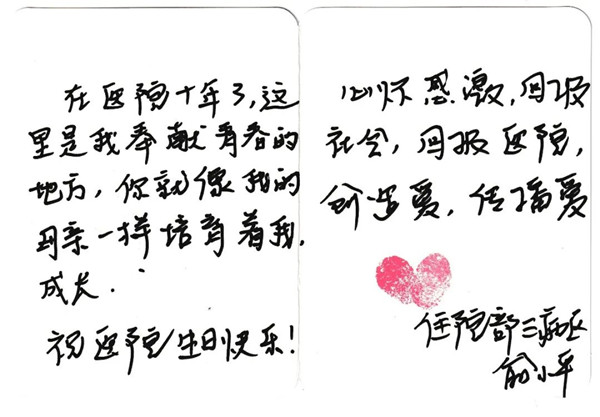 在医院十年了,这
里是我奉献青春的
地方,你就像我的
母亲一样培育着我,
成长.
祝医院生日快乐!
心怀感激,回报
社会,回报医院,
创造爱,传播爱
住院部三病区
俞小平